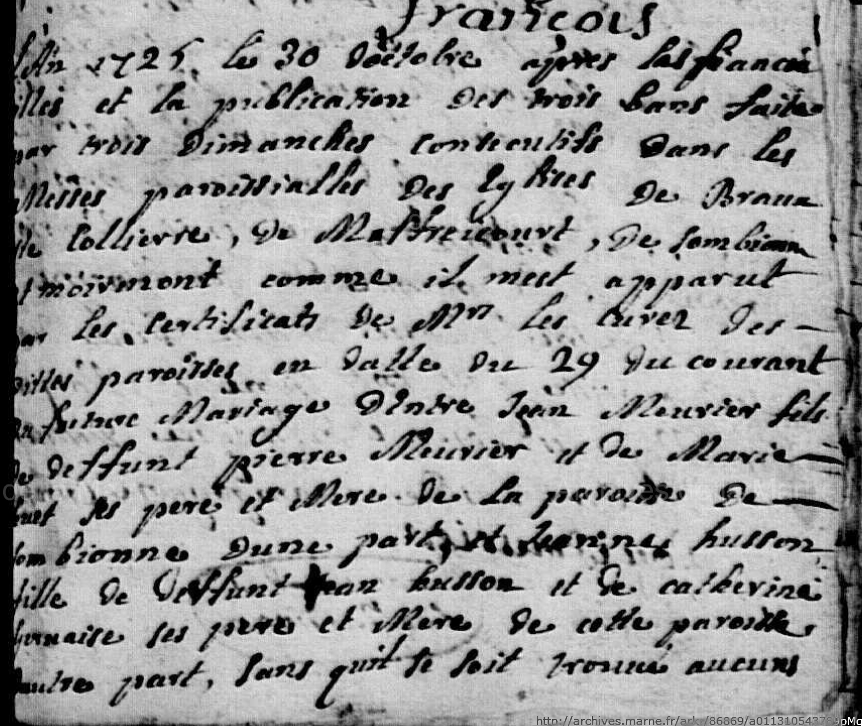 françois
L'An 1725 le 30 doctobre apres les fiancai
illes et la publication des trois bans faite
par trois Dimanches consecutifs dans les
Messes paroissialles des Eglises de Braux
Ste Collierre, de Maffrecourt, de sombionne
et moirmont comme il mest apparut
par les certificats de Mrs les curez des
dittes paroisses en datte du 29 du courant
du future Mariage d'Entre Jean Meurier fils
de deffunt pierre Meurier et de Marie
ses pere et Mere de la paroisse de
sombionne dune part, et Jeanne husson
fille de deffunt Jean husson et de catherine
ses pere et Mere de cette paroisse
dautre part, sans quil se soit trouué aucuns
http://archives.marne.fr/ark:/86869/a011310543